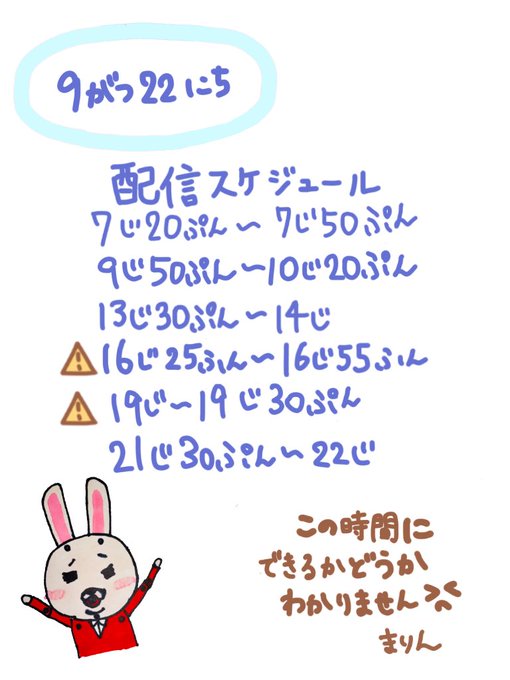 9がつ22にち
配信スケジュール
7じ20ぷん〜7じ50ぷん
9じ50ぷん〜10じ20ぷん
13じ30ぷん〜14じ
⚠16じ25ふん〜16じ55ふん
⚠19じ〜19じ30ぷん
21じ30ぷん〜22じ
この時間に
できるかどうか
わかりません><
まりん